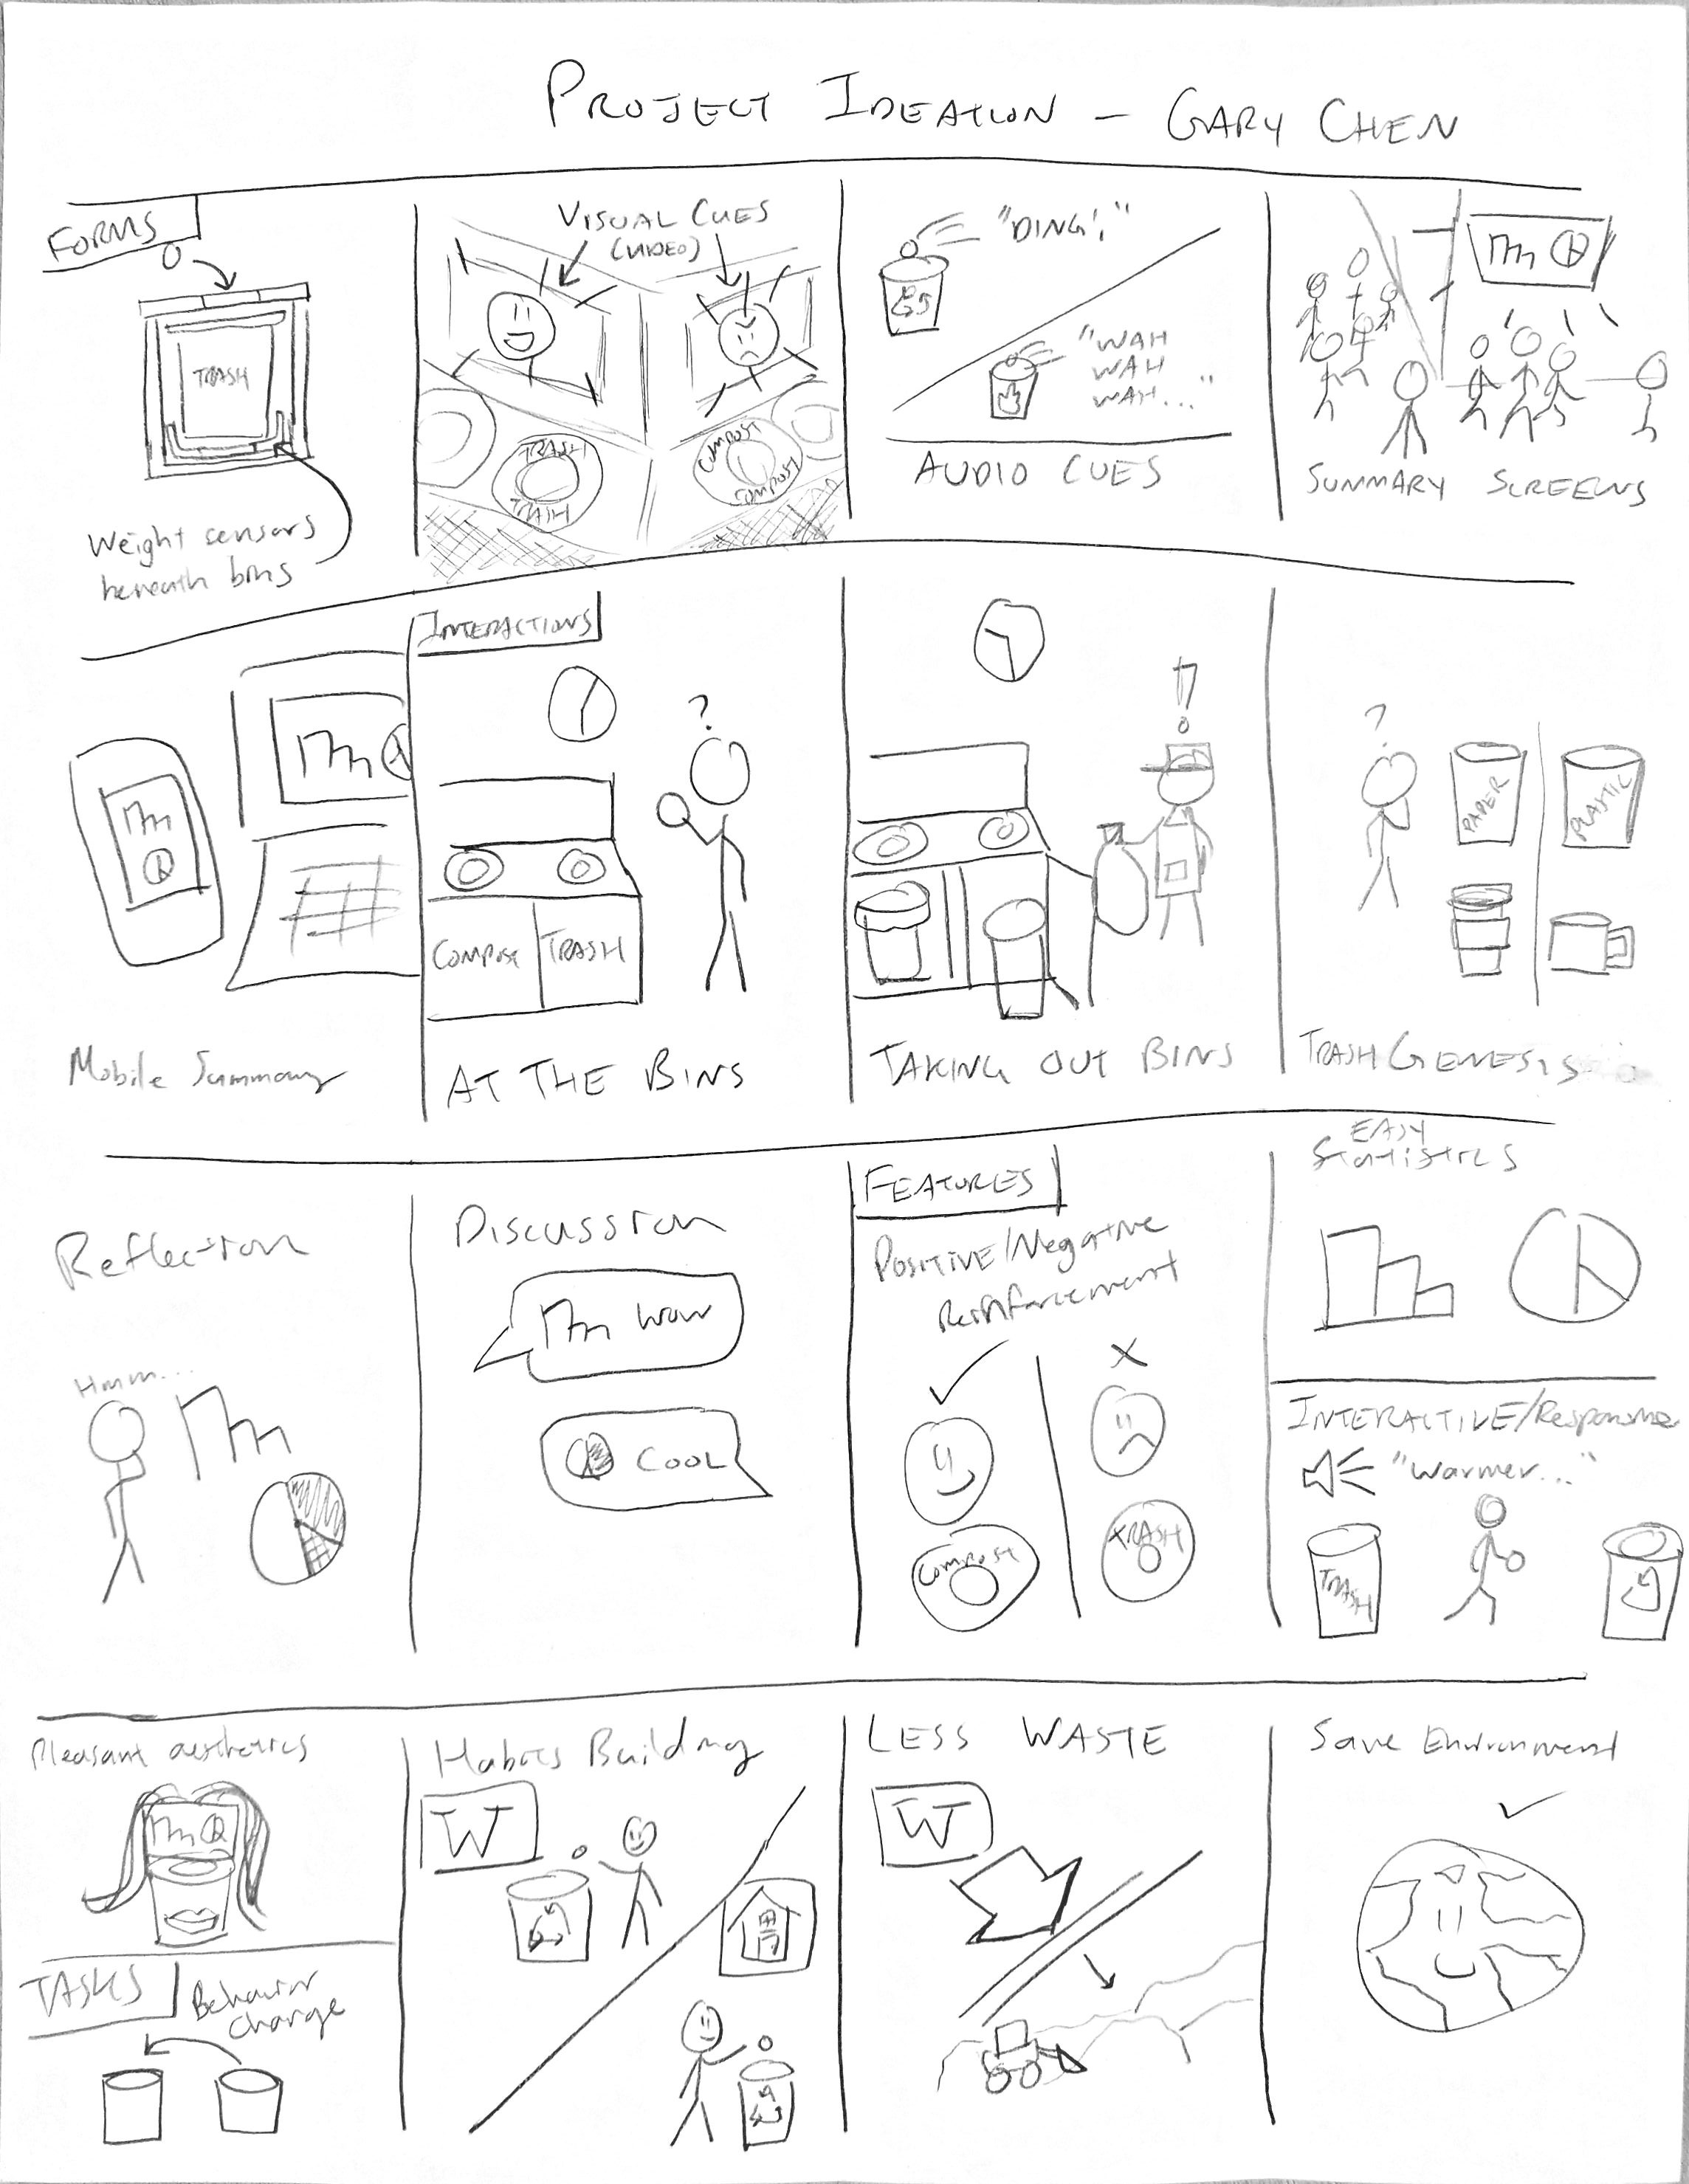 PROJECT IDEATION – GARY CHEN
FORMS
TRASH
Weight sensors
beneath bins
VISUAL CUES
(VIDEO)
TRASH
TRASH
COMPOST
COMPOST
"DING!"
"WAH
WAH
WAH..."
AUDIO CUES
SUMMARY SCREENS
Mobile Summary
INTERACTIONS
?
COMPOST
TRASH
AT THE BINS
!
TAKING OUT BINS
?
PAPER
PLASTIC
TRASH GENESIS
Reflection
Hmm...
Discussion
wow
COOL
FEATURES
POSITIVE/Negative
Reinforcement
COMPOST
TRASH
EASY
Statistics
INTERACTIVE/Responsive
"Warmer..."
TRASH
Pleasant aesthetics
TASKS
Behavior
change
Habits Building
W
LESS WASTE
W
Save Environment